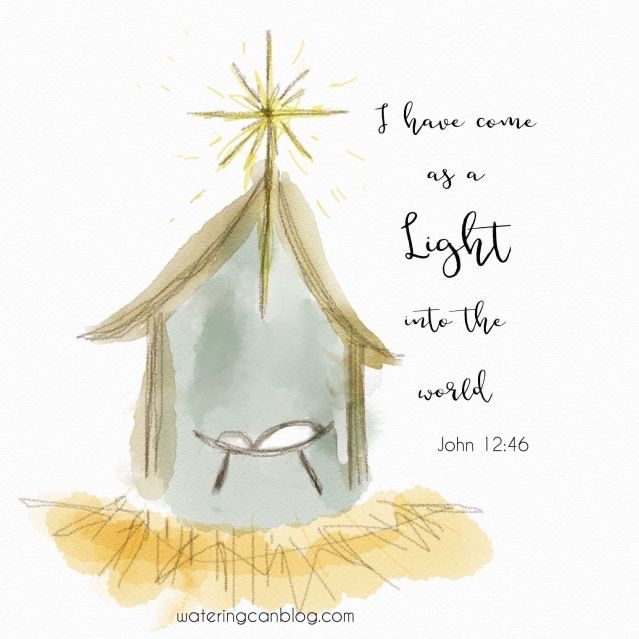 I have come
as a
Light
into the
world
John 12:46
wateringcanblog.com